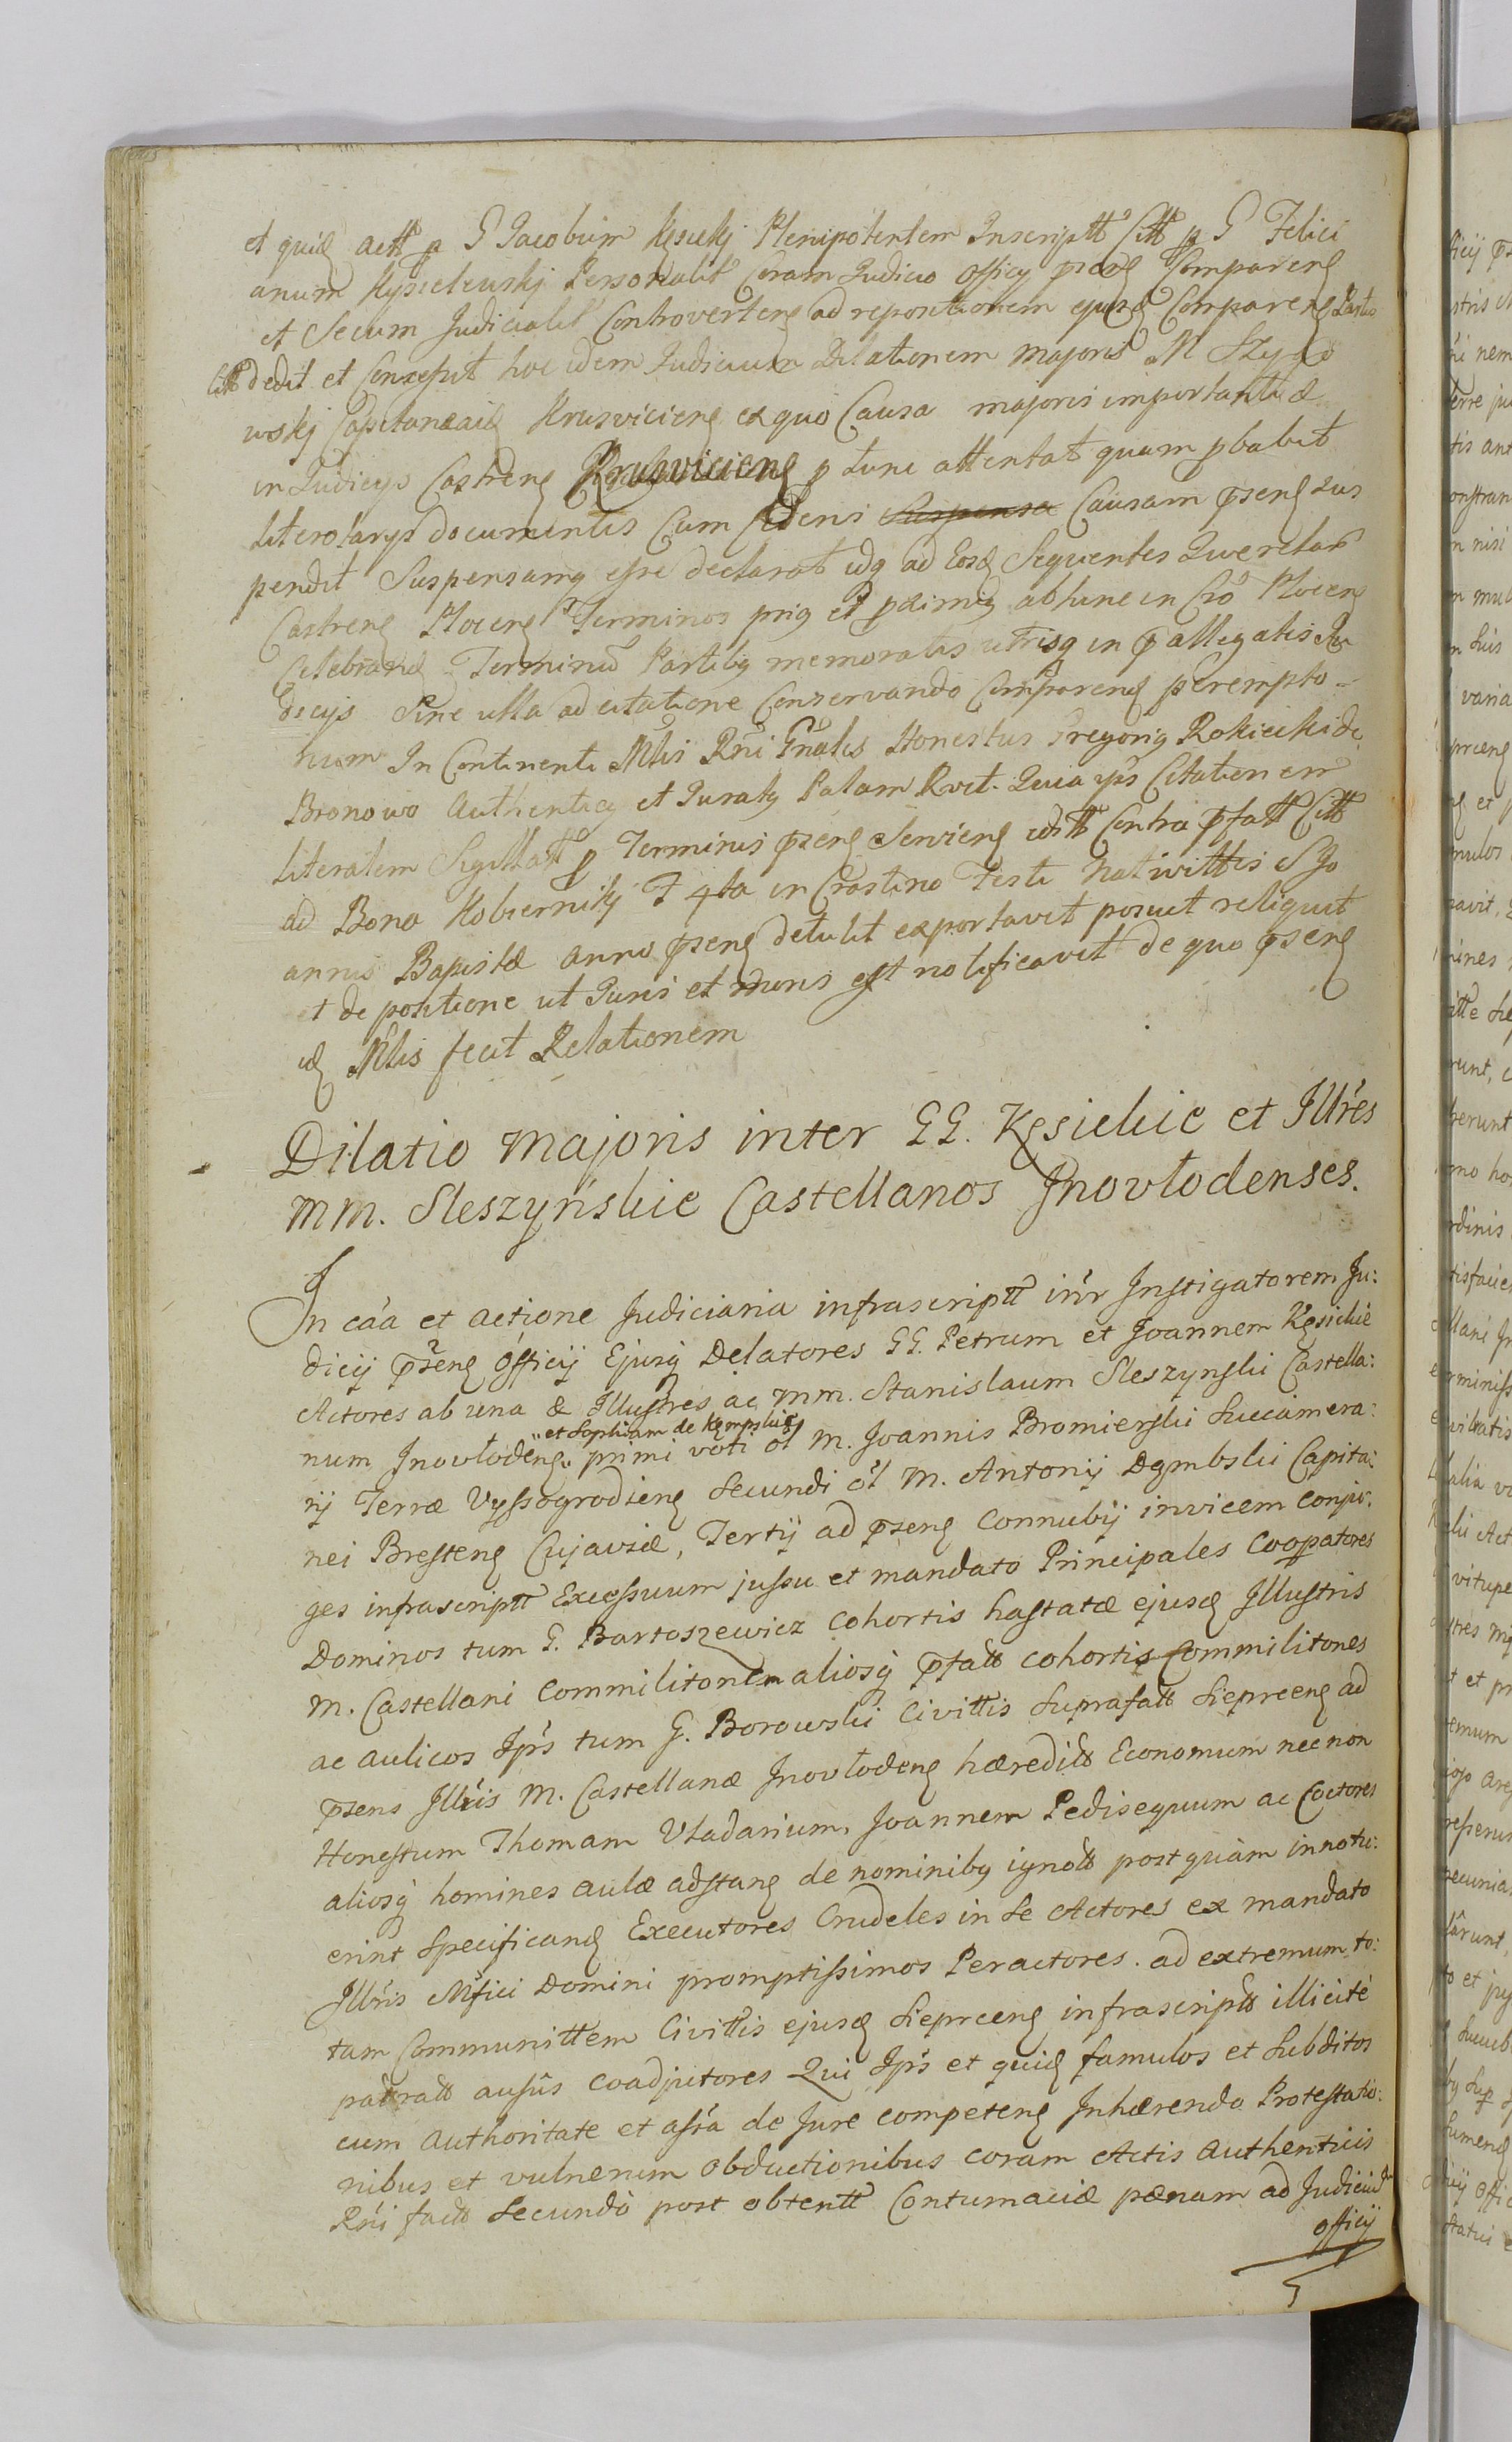 et quid actt p G Jacobum Kęsickj Plenipotentem Inscriptt Citt p G Felici
anum Kysielewskj Personalit Coram Judicio Officy Comparend
et Secum Judicialit Controverten ad repositionem ejusd Comparen Partis
Citt dedit et Concessit hoc idem Judicium Dilationem majoris M Szydło
wskj Capitaneali Krusvicien ex quo Causa majoris importantiæ
in Judicijs Castren Krusvicien p tunc attentat quam pbabit
literatorys documentis Cum Causam psens sus
pendit Suspensamq esse declarat idq ad Eosd Sequentes Querelar
Castren Plocen Terminos prius et pximis abhinc in Cro Plocen
Celebrand Terminum Partibus memoratis utrisq in pallegatis Ju
dicijs Sine ulla ad citatione Conservando Comparend perempto-
rium In Continenti Mlis Rni Gnalis Honestus Gregorius Rokickide
Bronowo Authenticus et Juratus Palam Rvit. Quia ips Citationem
literalem Sigillatt p Terminis psens Servien editt Contra pfatt Citt
ad Bona Kobiernikj F 4ta in Crastino Festi Nativittis S Jo
annis Baptistæ anno psens detulit exportavit posuit reliquit
et de positione ut Juris et moris est notificavit de quo psens
id Mlis fecit Relationem
Dilatio Majoris inter GG. Kęsickie et Illres
MM. Sleszyńskie Castellanos Inovłodenses.
In caa et actione Judiciaria infrascriptt intr Instigatorem Ju:
dicij psens Officij Ejusq Delatores GG. Petrum et Joannem Kęsickie
Actores ab una & Illustres ac MM. Stanislaum Sleszynski Castella:
et Sophiam de Kęmpskie
num Inovłoden primi voti ol M. Joannis Bromierski Succamera:
rij Terræ Vyssogrodien Secundi ol M. Antonij Dęmbski Capita:
nei Bresten Cujaviæ, Tertij ad psens Connubij invicem conju:
ges infrascriptt Excessuum jussu et mandato Principales Cooppatores
Dominos tum G. Bartoszewicz Cohortis hastatæ ejusd Illustris
M. Castellani Commilitonem aliosq pfatt cohortis Commilitones
ac aulicos Ipis tum G. Borowski Civittis Suprafatt Sieprcen ad
psens Illris M. Castellanæ Inovłoden hæreditt Economum nec non
Honestum Thomam Vladarium, Joannem Pedisequum ac Coctores
aliosq homines aulæ adstan de nominibus ignott postquàm innotu:
erint Specificand Executores Crudeles in Se Actores ex mandato
Illris Mfici Domini promptissimos Peractores. ad extremum to:
tam Communittem Civittis ejusd Sieprcen infrascriptt illicitè
patratt ausûs coadjutores Qui Ipis et quid famulos et Subditos
cum Authoritate et assa de Jure competen Inhærendo Protestatio:
nibus et vulnerum Obductionibus coram Actis Authenticis
Rni factt Secundò post obtentt Contumaciæ pænam ad Judicium
Officij